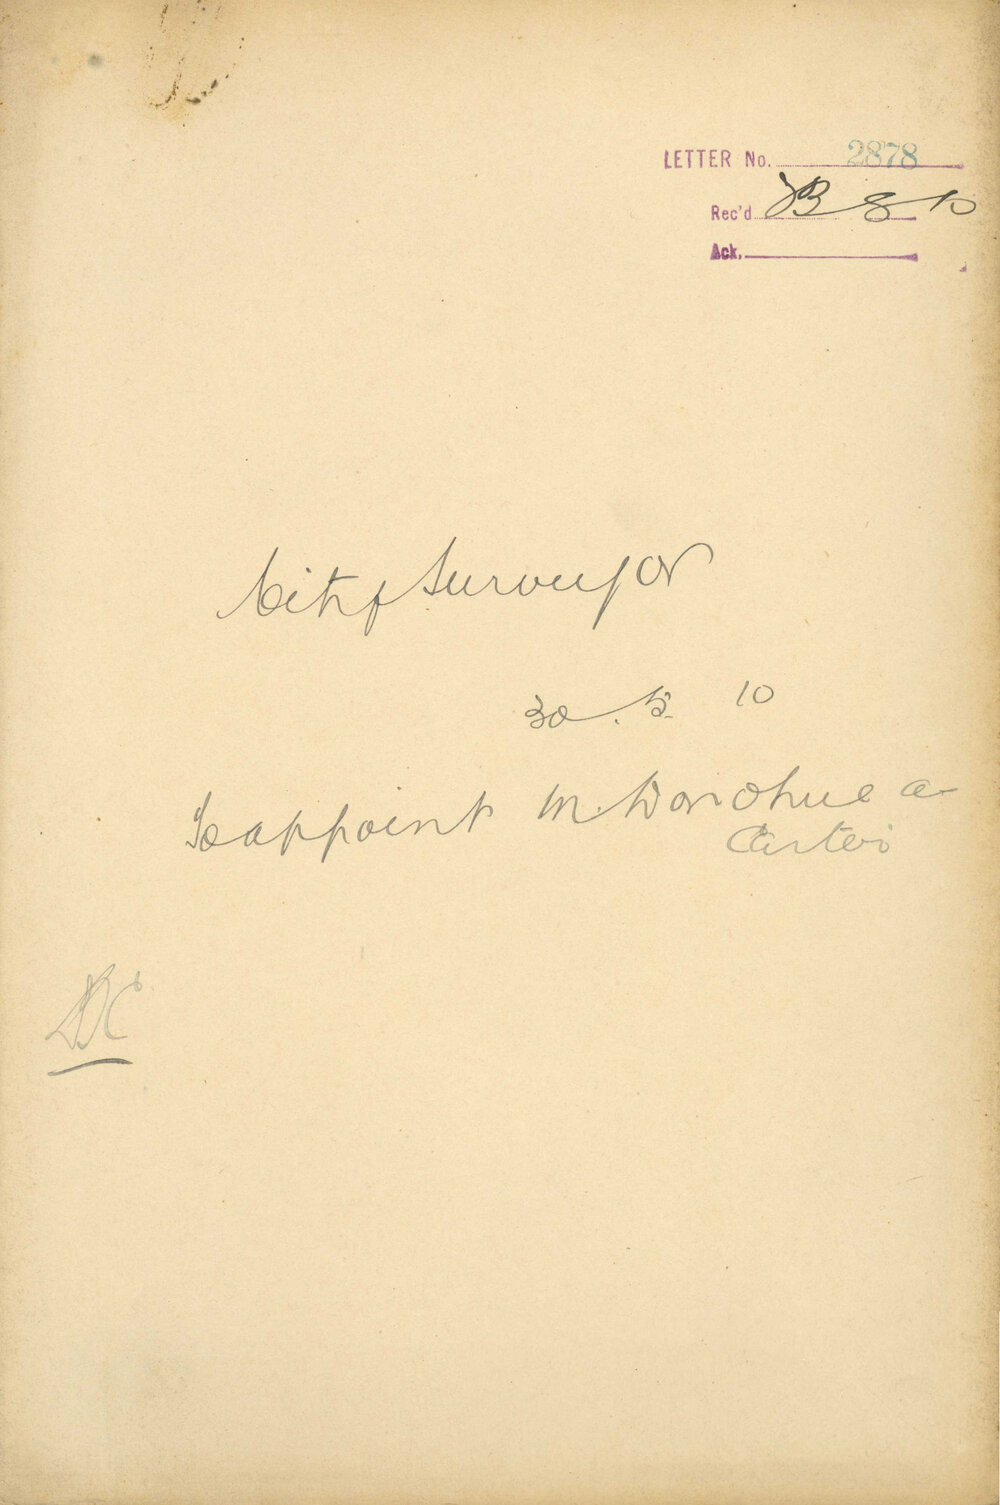 LETTER No. 2878
Rec'd B 8 10
Ack.
City Surveyor
30. 5. 10
To appoint M. Donohue a
Carter